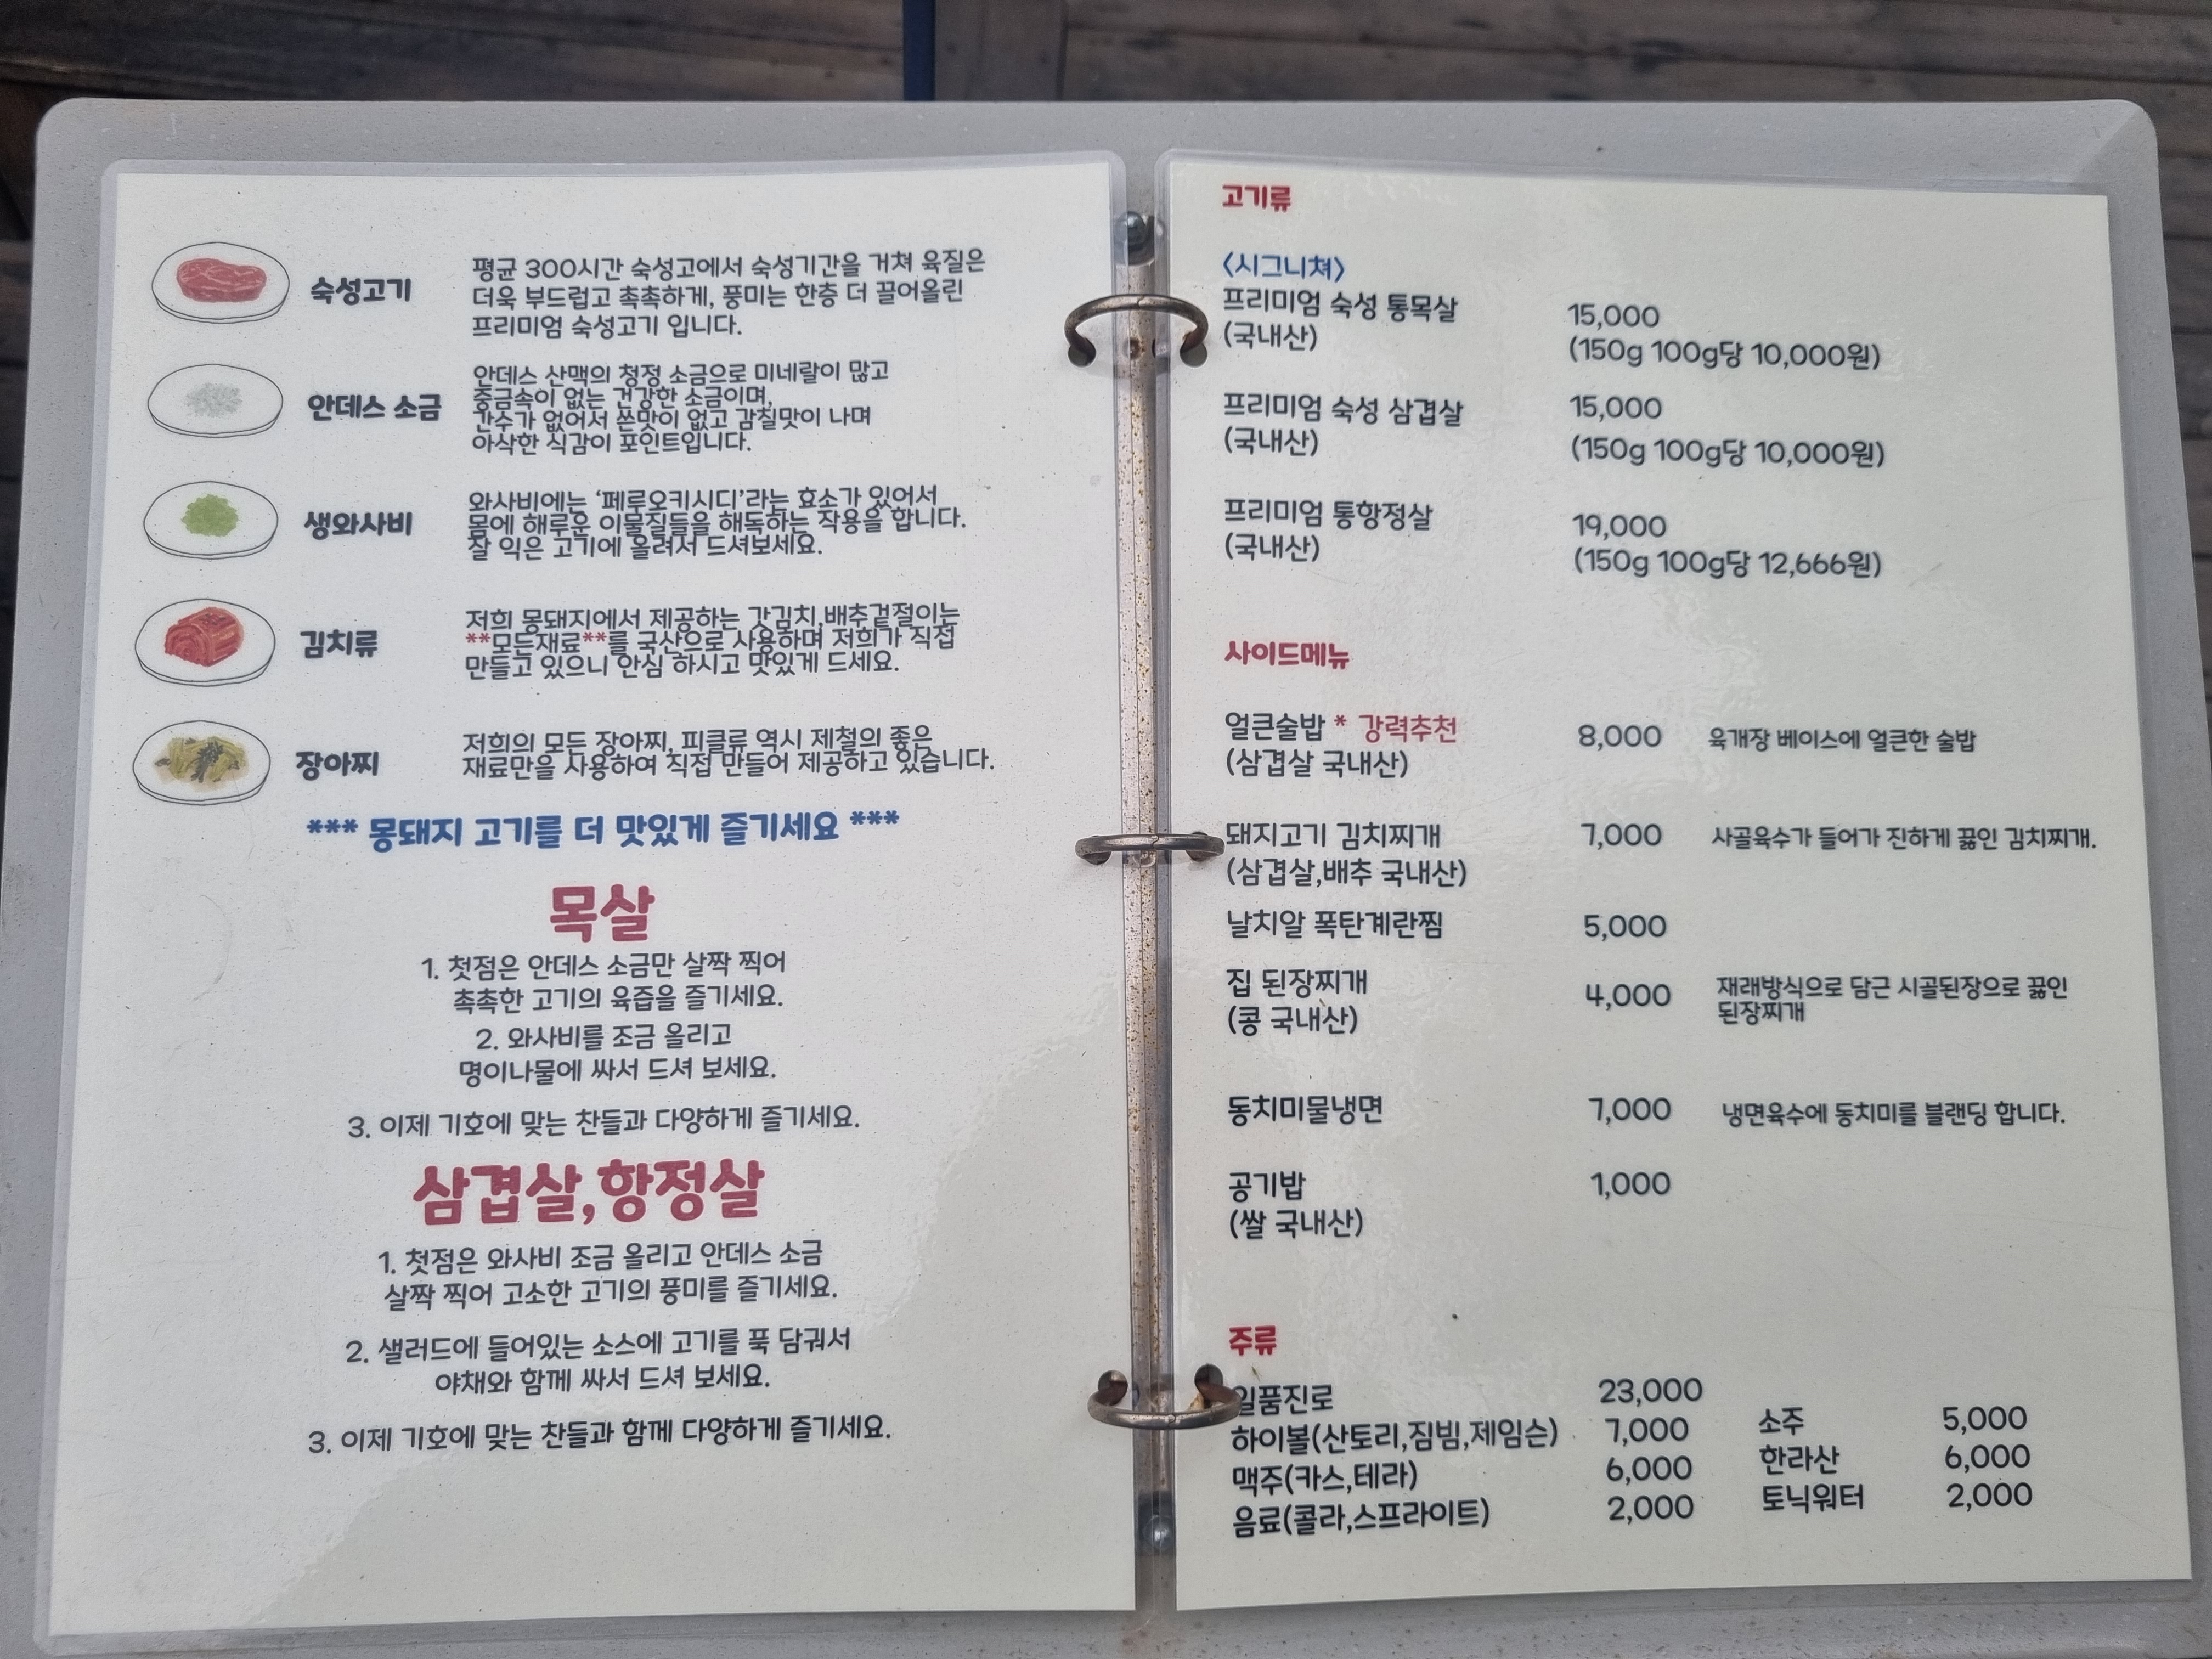 숙성고기
평균 300시간 숙성고에서 숙성기간을 거쳐 육질은
더욱 부드럽고 촉촉하게, 풍미는 한층 더 끌어올린
프리미엄 숙성고기 입니다.
안데스 소금
안데스 산맥의 청정 소금으로 미네랄이 많고
중금속이 없는 건강한 소금이며,
간수가 없어서 쓴맛이 없고 감칠맛이 나며
아삭한 식감이 포인트입니다.
생와사비
와사비에는 '페루오키시디'라는 효소가 있어서
몸에 해로운 이물질들을 해독하는 작용을 합니다.
잘 익은 고기에 올려서 드셔보세요.
김치류
저희 몽돼지에서 제공하는 갓김치,배추겉절이는
**모든재료**를 국산으로 사용하며 저희가 직접
만들고 있으니 안심 하시고 맛있게 드세요.
장아찌
저희의 모든 장아찌, 피클류 역시 제철의 좋은
재료만을 사용하여 직접 만들어 제공하고 있습니다.
*** 몽돼지 고기를 더 맛있게 즐기세요 ***
목살
1. 첫점은 안데스 소금만 살짝 찍어
촉촉한 고기의 육즙을 즐기세요.
2. 와사비를 조금 올리고
명이나물에 싸서 드셔 보세요.
3. 이제 기호에 맞는 찬들과 다양하게 즐기세요.
삼겹살,항정살
1. 첫점은 와사비 조금 올리고 안데스 소금
살짝 찍어 고소한 고기의 풍미를 즐기세요.
2. 샐러드에 들어있는 소스에 고기를 푹 담궈서
야채와 함께 싸서 드셔 보세요.
3. 이제 기호에 맞는 찬들과 함께 다양하게 즐기세요.
고기류
<시그니쳐>
프리미엄 숙성 통목살 15,000
(국내산) (150g 100g당 10,000원)
프리미엄 숙성 삼겹살 15,000
(국내산) (150g 100g당 10,000원)
프리미엄 통항정살 19,000
(국내산) (150g 100g당 12,666원)
사이드메뉴
얼큰술밥 * 강력추천 8,000 육개장 베이스에 얼큰한 술밥
(삼겹살 국내산)
돼지고기 김치찌개 7,000 사골육수가 들어가 진하게 끓인 김치찌개.
(삼겹살,배추 국내산)
날치알 폭탄계란찜 5,000
집 된장찌개 4,000 재래방식으로 담근 시골된장으로 끓인
(콩 국내산) 된장찌개
동치미물냉면 7,000 냉면육수에 동치미를 블랜딩 합니다.
공기밥 1,000
(쌀 국내산)
주류
일품진로 23,000
하이볼(산토리,짐빔,제임슨) 7,000 소주 5,000
맥주(카스,테라) 6,000 한라산 6,000
음료(콜라,스프라이트) 2,000 토닉워터 2,000